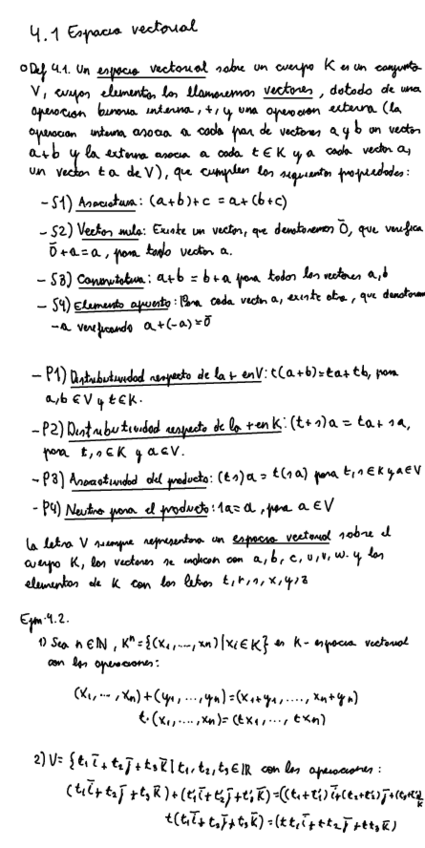 4.1 Espacio vectorial
○ Def 4.1. Un espacio vectorial sobre un cuerpo K es un conjunto
V, cuyos elementos los llamaremos vectores, dotado de una
operación binaria interna, +, y una operacion externa (la
operacion interna asocia a cada par de vectores a y b un vector
a+b y la externa asocia a cada t ∈ K y a cada vector a,
un vector ta de V), que cumplen las siguientes propiedades:
- S1) Asociativa: (a+b)+c = a+(b+c)
- S2) Vector nulo: Existe un vector, que denotaremos 0̄, que verifica
0̄+a=a, para todo vector a.
- S3) Conmutativa: a+b = b+a para todos los vectores a, b
- S4) Elemento opuesto: Para cada vector a, existe otro, que denotamos
-a verificando a+(-a)=0̄
- P1) Distributividad respecto de la + en V: t(a+b)=ta+tb, para
a,b ∈ V y t ∈ K.
- P2) Distributividad respecto de la + en K: (t+s)a = ta+sa,
para t,s ∈ K y a ∈ V.
- P3) Asociatividad del producto: (ts)a = t(sa) para t,s ∈ K y a ∈ V
- P4) Neutro para el producto: 1a=a, para a ∈ V
La letra V siempre representara un espacio vectorial sobre el
cuerpo K, los vectores se indican con a, b, c, u, v, w. y los
elementos de K con las letras t, r, s, x, y, z
Ejm 4.2.
1) Sea n ∈ ℕ, Kⁿ={(x₁,...,xn) | xᵢ ∈ K} es K-espacio vectorial
con las operaciones:
(x₁,...,xn)+(y₁,...,yn)=(x₁+y₁,...,xn+yn)
t·(x₁,...,xn)=(tx₁,...,txn)
2) V={t₁ī+t₂j̄+t₃k̄ | t₁,t₂,t₃∈ℝ con las operaciones:
(t₁ī+t₂j̄+t₃k̄)+(t₁'ī+t₂'j̄+t₃'k̄)=((t₁+t₁')ī+(t₂+t₂')j̄+(t₃+t₃')k̄
t(t₁ī+t₂j̄+t₃k̄)=(tt₁ī+tt₂j̄+tt₃k̄)